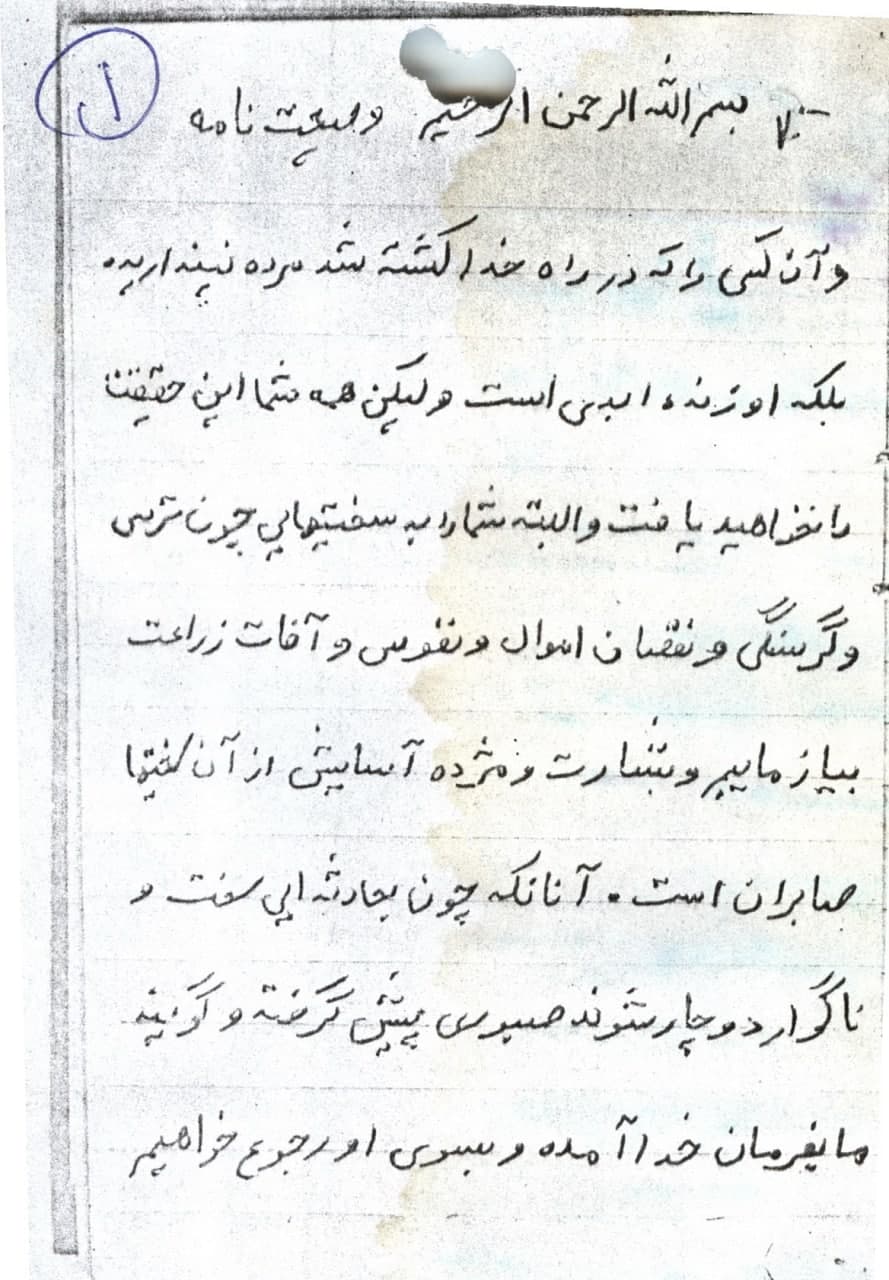 بسم الله الرحمن الرحیم وصیت نامه
۱
وآن کسی را که در راه خدا کشته شد مرده نپندارید.
بلکه او زنده ابدی است ولیکن همه شما این حقیقت
را نخواهید یافت والبته شما را به سختیهایی چون ترس
وگرسنگی و نقصان اموال و نفوس و آفات زراعت
بیازماییم وبشارت ومژده آسایش از آن سختیها
صابران است. آنانکه چون بحادثه ایی سخت و
ناگوار دوچار شوند صبوری پیش گرفته و گویند
ما بفرمان خدا آمده و بسوی او رجوع خواهیم